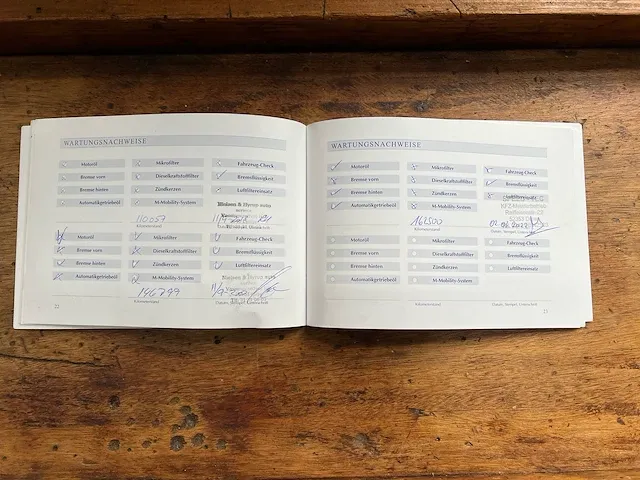 WARTUNGSNACHWEISE
Motoröl Mikrofilter Fahrzeug-Check
Bremse vorn Dieselkraftstofffilter Bremsflüssigkeit
Bremse hinten Zündkerzen Luftfiltereinsatz
Automatikgetriebeöl M-Mobility-System
Kilometerstand
Motoröl Mikrofilter Fahrzeug-Check
Bremse vorn Dieselkraftstofffilter Bremsflüssigkeit
Bremse hinten Zündkerzen Luftfiltereinsatz
Automatikgetriebeöl M-Mobility-System
146799
Kilometerstand Datum, Stempel, Unterschrift
22
WARTUNGSNACHWEISE
Motoröl Mikrofilter Fahrzeug-Check
Bremse vorn Dieselkraftstofffilter Bremsflüssigkeit
Bremse hinten Zündkerzen Luftfiltereinsatz
Automatikgetriebeöl M-Mobility-System
162500 02.06.2022
Kilometerstand Datum, Stempel, Unterschrift
Motoröl Mikrofilter Fahrzeug-Check
Bremse vorn Dieselkraftstofffilter Bremsflüssigkeit
Bremse hinten Zündkerzen Luftfiltereinsatz
Automatikgetriebeöl M-Mobility-System
Kilometerstand Datum, Stempel, Unterschrift
23